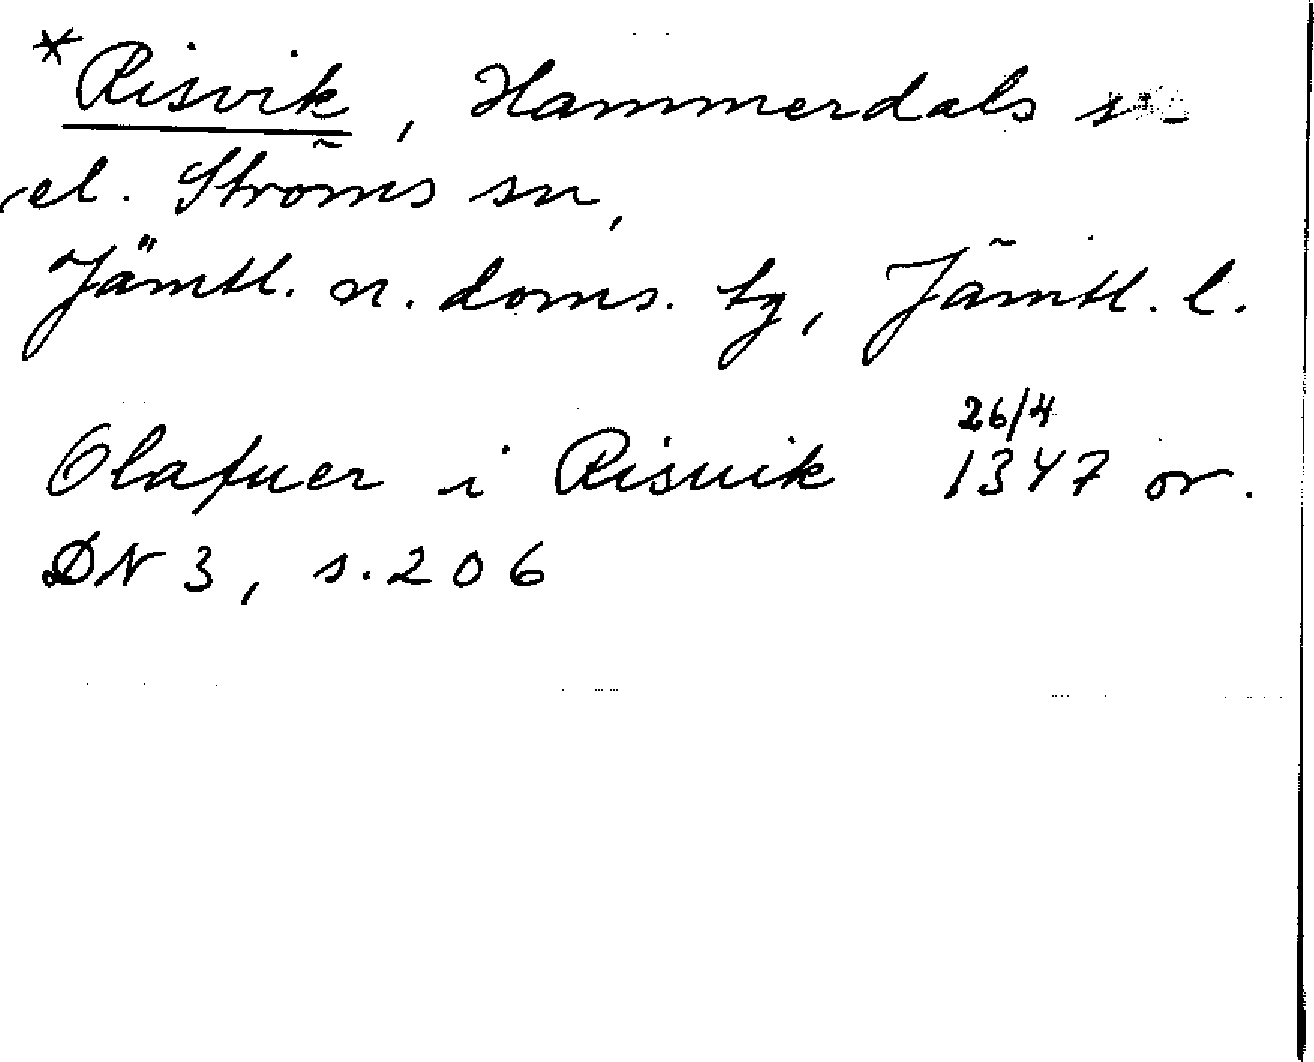 *Risvik, Hammerdals sn
el. Ströms sn,
Jämtl. n. doms. tg, Jämtl. l.
26/4
Olafuer i Risuik 1347 or.
DN 3, s. 206